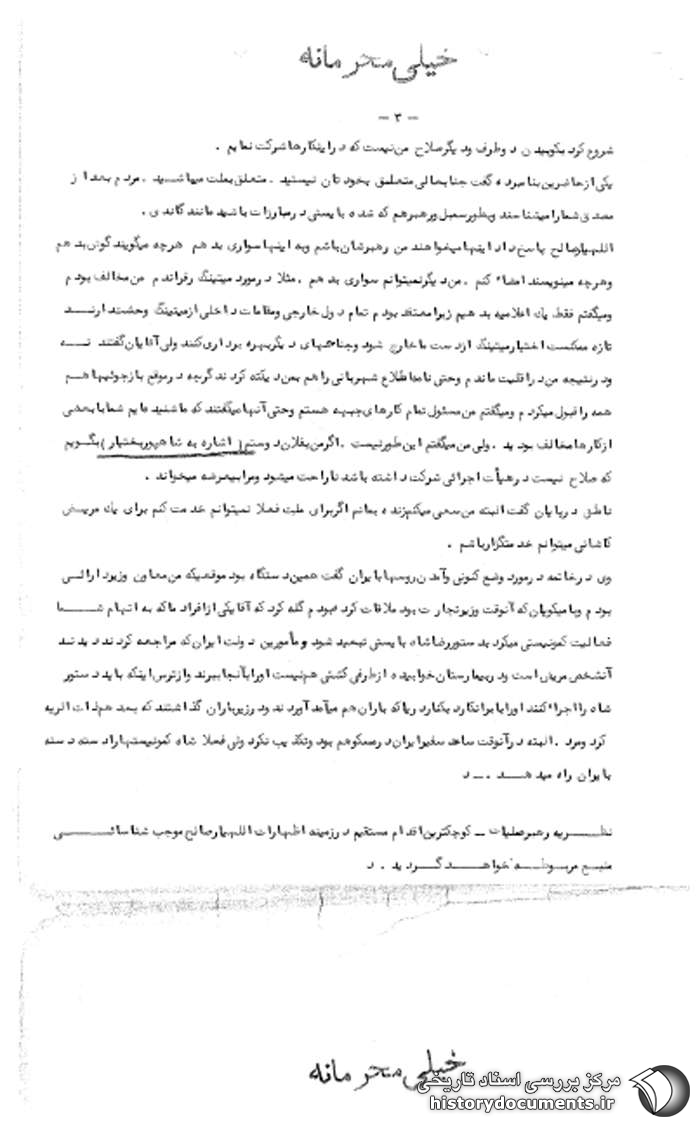 خیلی محرمانه
- ۳ -
شروع کرد بکوبیدن دو طرف و دیگر صلاح من نیست که در اینکارها شرکت نمایم .
یکی از حاضرین بنامبرده گفت جنابعالی متعلق بخودتان نیستید . متعلق بملت میباشید . مردم بعد از
مصدق شما را میشناسند و بطور سمبل و رهبر هم که شده بایستی در مبارزات باشید مانند گاندی .
اللهیار صالح پاسخ داد اینها میخواهند من رهبرشان باشم و به اینها سواری بدهم هرچه میگویند گوش بدهم
و هرچه مینویسند امضاء کنم . من دیگر نمیتوانم سواری بدهم . مثلا در مورد میتینگ رفراندم من مخالف بودم
و میگفتم فقط یک اعلامیه بدهیم زیرا معتقد بودم تمام دول خارجی و مقامات داخلی از میتینگ وحشت دارند
تازه ممکنست اختیار میتینگ از دست ما خارج شود و جناحهای دیگر بهره برداری کنند ولی آقایان گفتند نه
و در نتیجه من در اقلیت ماندم و حتی نامه اطلاع شهربانی را هم بمن دیکته کردند گرچه در موقع بازجوئیها هم
همه را قبول میکردم و میگفتم من مسئول تمام کارهای جبهه هستم و حتی آنها میگفتند که ما شنیده ایم شما با بعضی
از کارها مخالف بودید . ولی من میگفتم این طور نیست . اگر من بفلان دوستم ( اشاره به شاهپور بختیار ) بگویم
که صلاح نیست در هیأت اجرائی شرکت داشته باشد ناراحت میشود و مرا بیعرضه میخواند .
ناطق در پایان گفت البته من سعی میکنم زنده بمانم اگر برای ملت فعلا نمیتوانم خدمت کنم برای یک مریض
کاشانی میتوانم خدمتگزار باشم .
وی در خاتمه در مورد وضع کنونی و آمدن روسها بایران گفت همین دستگاه بود موقعیکه من معاون وزیر دارائی
بودم و با میکویان که آنوقت وزیر تجارت بود ملاقات کرده بودم گله کرد که آقا یکی از افراد ما که به اتهام شما
فعالیت کمونیستی میکرد بدستور رضاشاه بایستی تبعید شود و مأمورین دولت ایران که مراجعه کردند دیدند
آنشخص مریض است و در بیمارستان خوابیده از طرفی کشتی هم نیست او را بآنجا ببرند و از ترس اینکه باید دستور
شاه را اجراء کنند او را با برانکارد بکنار دریا که باران هم میآمد آوردند و در زیر باران گذاشتند که بعد هم ذات الریه
کرد و مرد . البته در آنوقت ساعد سفیر ایران در مسکو هم بود و تکذیب نکرد ولی فعلا شاه کمونیستها را دسته دسته
بایران راه میدهد . ـ د
نظریه رهبر عملیات ـ کوچکترین اقدام مستقیم در زمینه اظهارات اللهیار صالح موجب شناسائی
منبع مربوطه خواهد گردید . د
خیلی محرمانه
مرکز بررسی اسناد تاریخی
historydocuments.ir